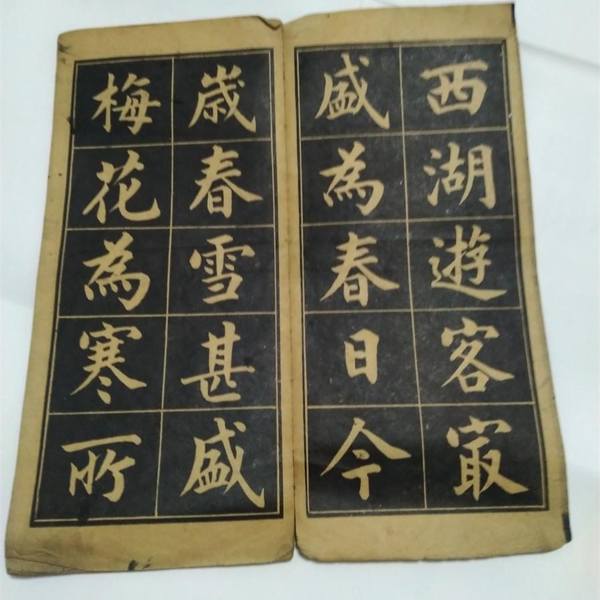 西湖遊客冣
盛為春日今
歳春雪甚盛
梅花為寒所